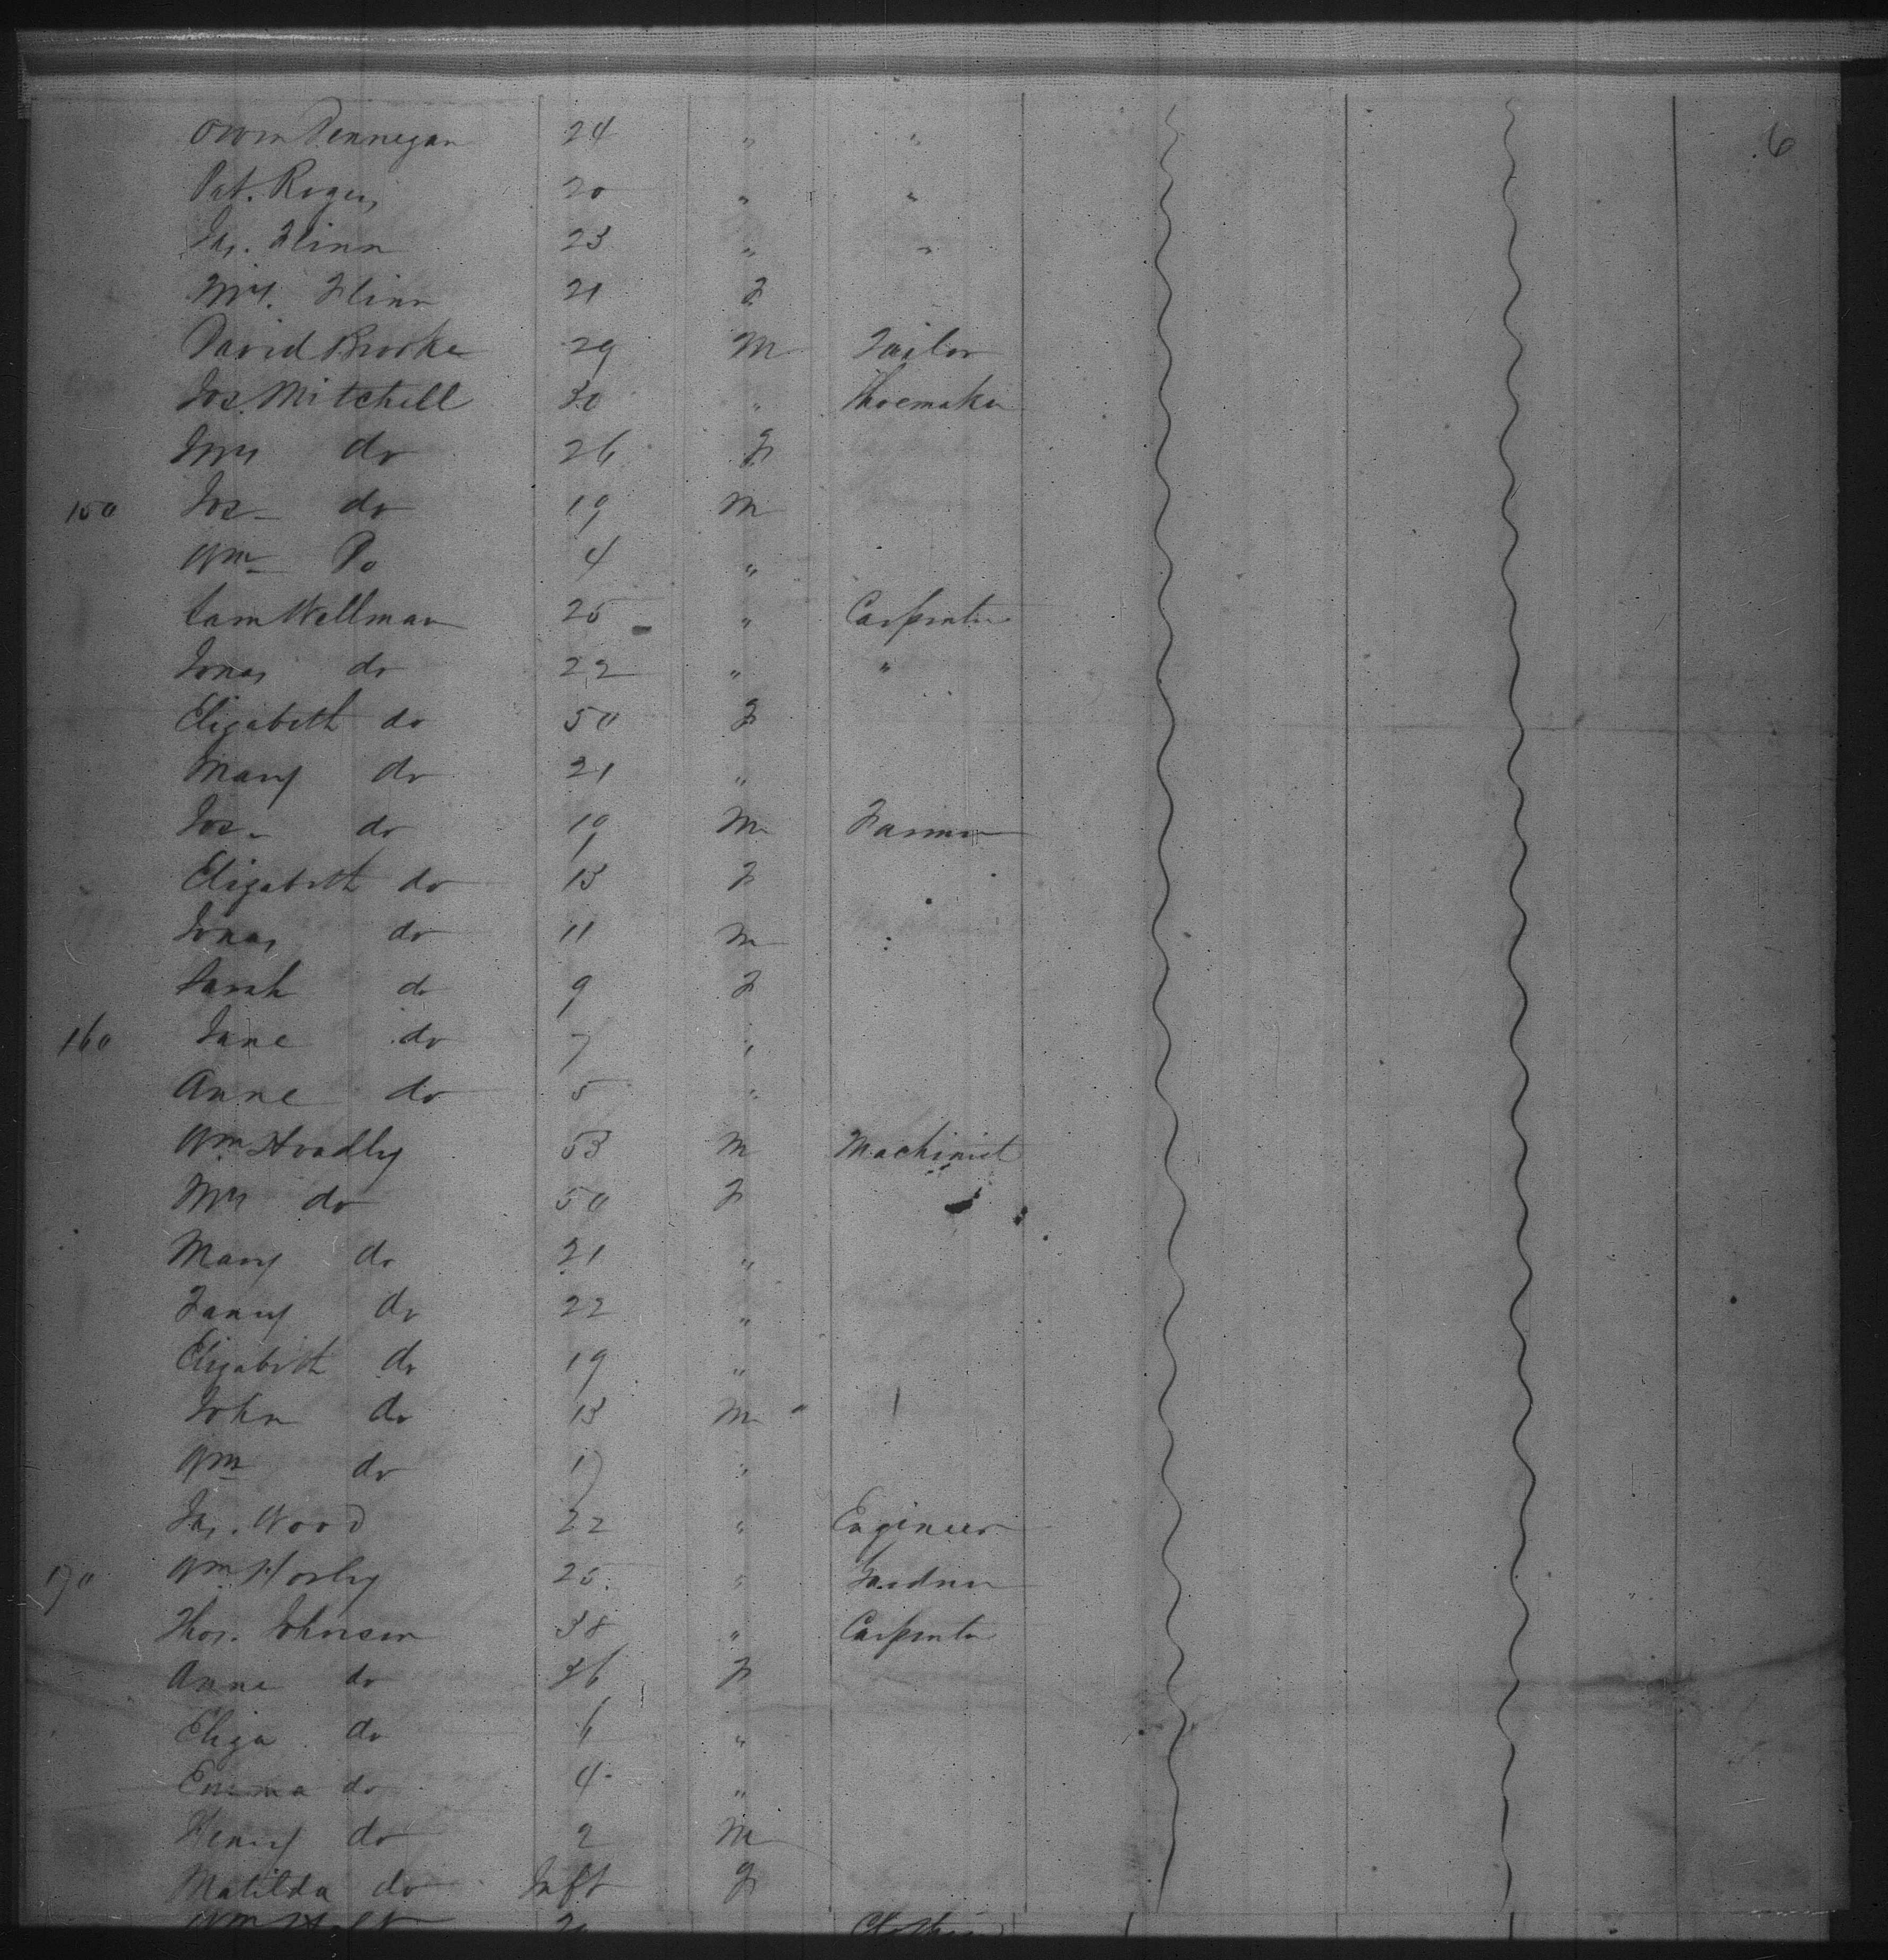 6
Owen Dennegan 24 " "
Pat. Rogers 20 " "
Jas. Flinn 23 " "
Mrs. Flinn 21 F
David Brooke 29 M Tailor
Jos. Mitchell 30 " Shoemaker
Mrs do 26 F
150 Jos. do 19 M
Wm Do 4 "
Sam Wellman 25 " Carpenter
Jonas do 22 " "
Elizabeth do 50 F
Mary do 21 "
Jos. do 19 M Farmer
Elizabeth do 13 F
Jonas do 11 M
Sarah do 9 F
160 Jane do 7 "
Anne do 5 "
Wm Hoadley 53 M Machinist
Mrs do 50 F
Mary do 21 "
Fanny do 22 "
Elizabeth do 19 "
John do 13 M
Wm do 17 "
Jas. Wood 22 " Engineer
170 Wm Horley 25 " Gardner
Thos. Johnson 38 " Carpenter
Anne do 36 F
Eliza do 6 "
Emma do 4 "
Henry do 2 M
Matilda do Inft F
Wm